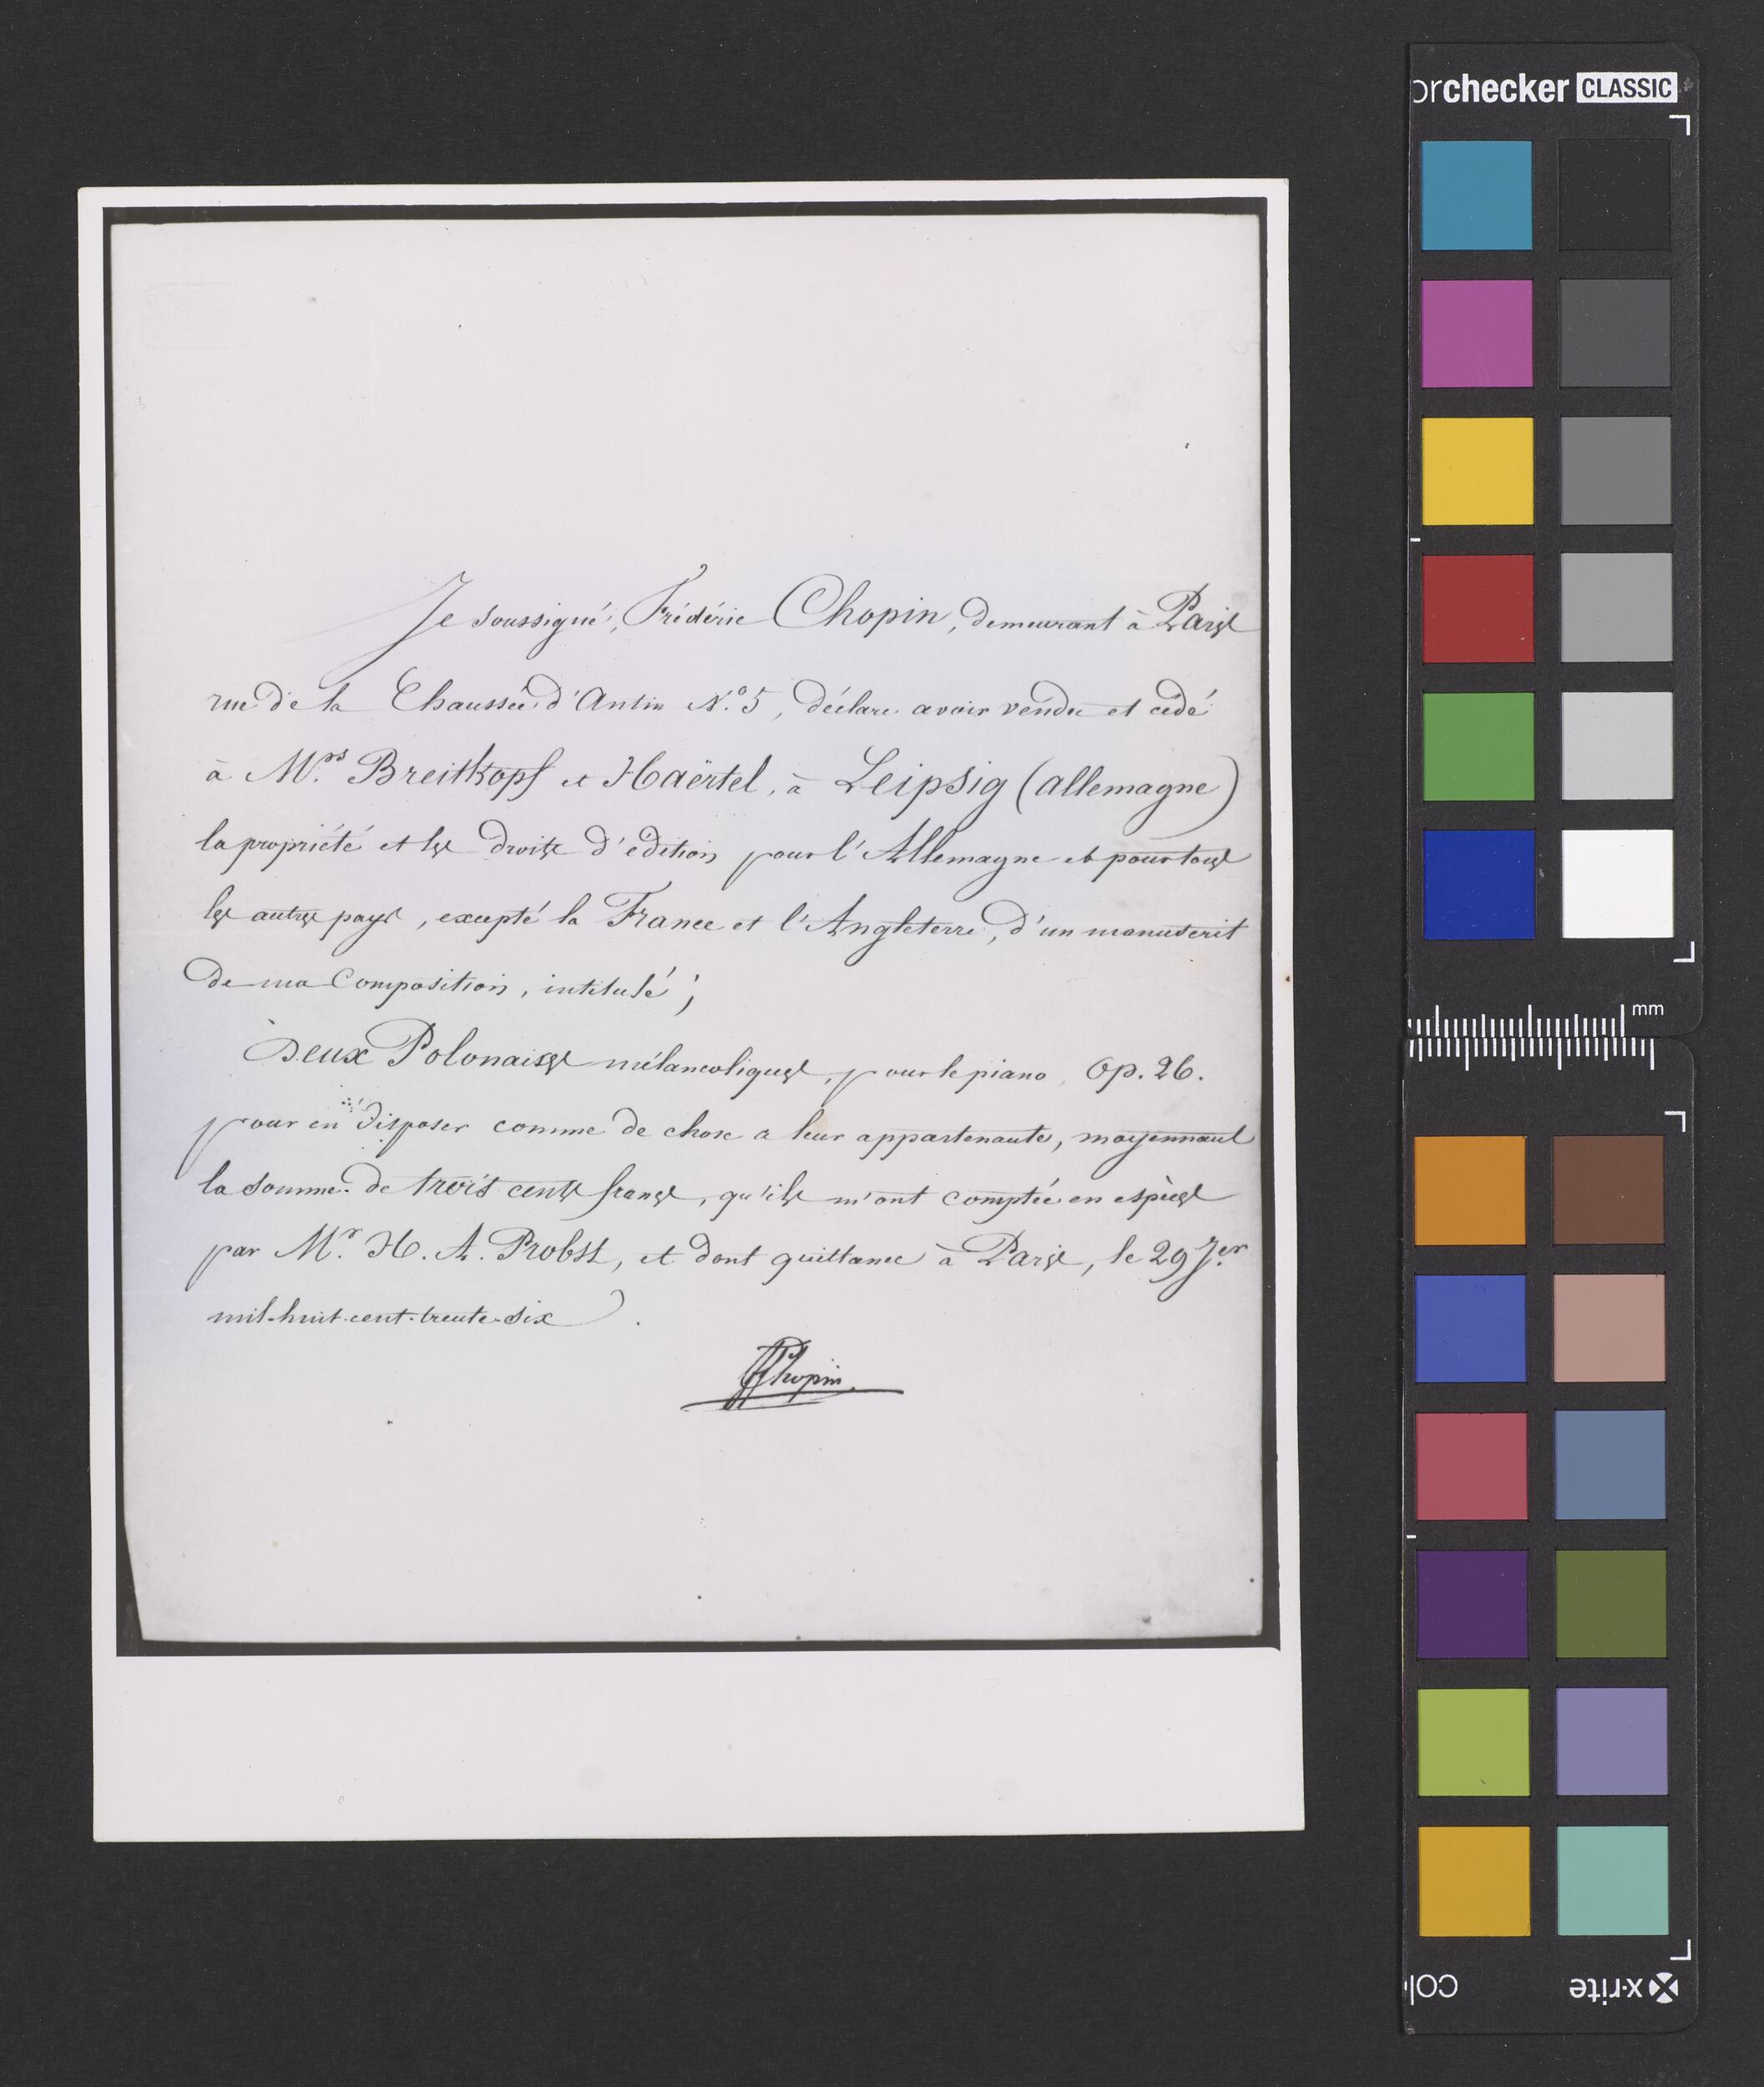 orchecker CLASSIC
Je soussigné, Frédéric Chopin, demeurant à Paris
rue de la Chaussée d'Antin N.º 5, déclare avoir vendu et cédé
à M.rs Breitkopf et Haërtel, à Leipsig (allemagne)
la propriété et les droits d'édition pour l'Allemagne et pour tous
les autres pays, excepté la France et l'Angleterre, d'un manuscrit
de ma Composition, intitulé ;
Deux Polonaises mélancoliques, pour le piano, Op. 26.
pour en disposer comme de chose a leur appartenante, moyennant
la somme de trois cents francs, qu'ils m'ont comptée en espèces
par M.r H. A. Probst, et dont quittance à Paris, le 29 J.er
mil-huit-cent-trente-six.
FChopin
mm
x-rite
col